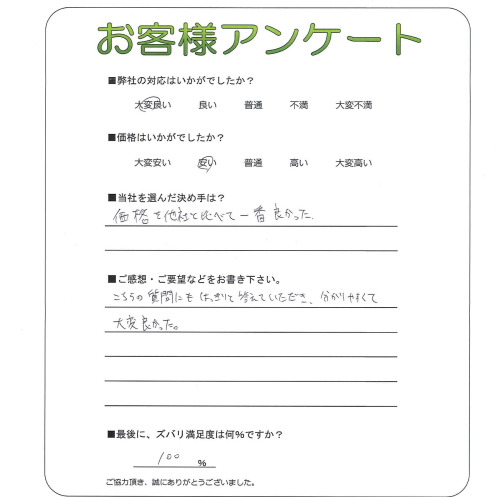 お客様アンケート
■弊社の対応はいかがでしたか？
大変良い 良い 普通 不満 大変不満
■価格はいかがでしたか？
大変安い 安い 普通 高い 大変高い
■当社を選んだ決め手は？
価格を他社と比べて一番良かった.
■ご感想・ご要望などをお書き下さい。
こちらの質問にもはっきりと答えていただき、分かりやすくて
大変良かった。
■最後に、ズバリ満足度は何%ですか？
100 %
ご協力頂き、誠にありがとうございました。